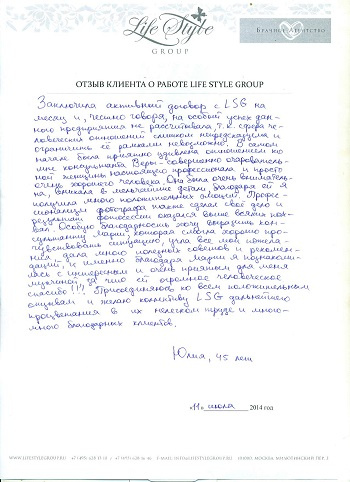 Life Style
GROUP
БРАЧНОЕ АГЕНТСТВО
ОТЗЫВ КЛИЕНТА О РАБОТЕ LIFE STYLE GROUP
Заключила активный договор с LSG на
месяц и, честно говоря, на особый успех дан-
ного предприятия не рассчитывала, т.к. сфера че-
ловеческих отношений слишком непредсказуема и
ограничить её рамками невозможно. В самом
начале была приятно удивлена отношением ко
мне консультанта Веры - совершенно очарователь-
ной женщины, настоящего профессионала и просто
очень хорошего человека. Она была очень вниматель-
на, вникала в мельчайшие детали, благодаря ей я
получила много положительных эмоций. Профес-
сионализм фотографа также сделал своё дело и
результат фотосессии оказался выше всяких пох-
вал. Особую благодарность хочу выразить кон-
сультанту Марии, которая смогла хорошо про-
чувствовать ситуацию, учла все мои пожела-
ния, дала много полезных советов и рекомен-
даций, и именно благодаря Марии я познакоми-
лась с интересным и очень приятным для меня
мужчиной, за что ей огромное человеческое
спасибо!!! Присоединяюсь ко всем положительным
отзывам и желаю коллективу LSG дальнейшего
процветания в их нелегком труде и много-
много благодарных клиентов.
Юлия, 45 лет
«11» июля 2014 год
WWW.LIFESTYLEGROUP.RU